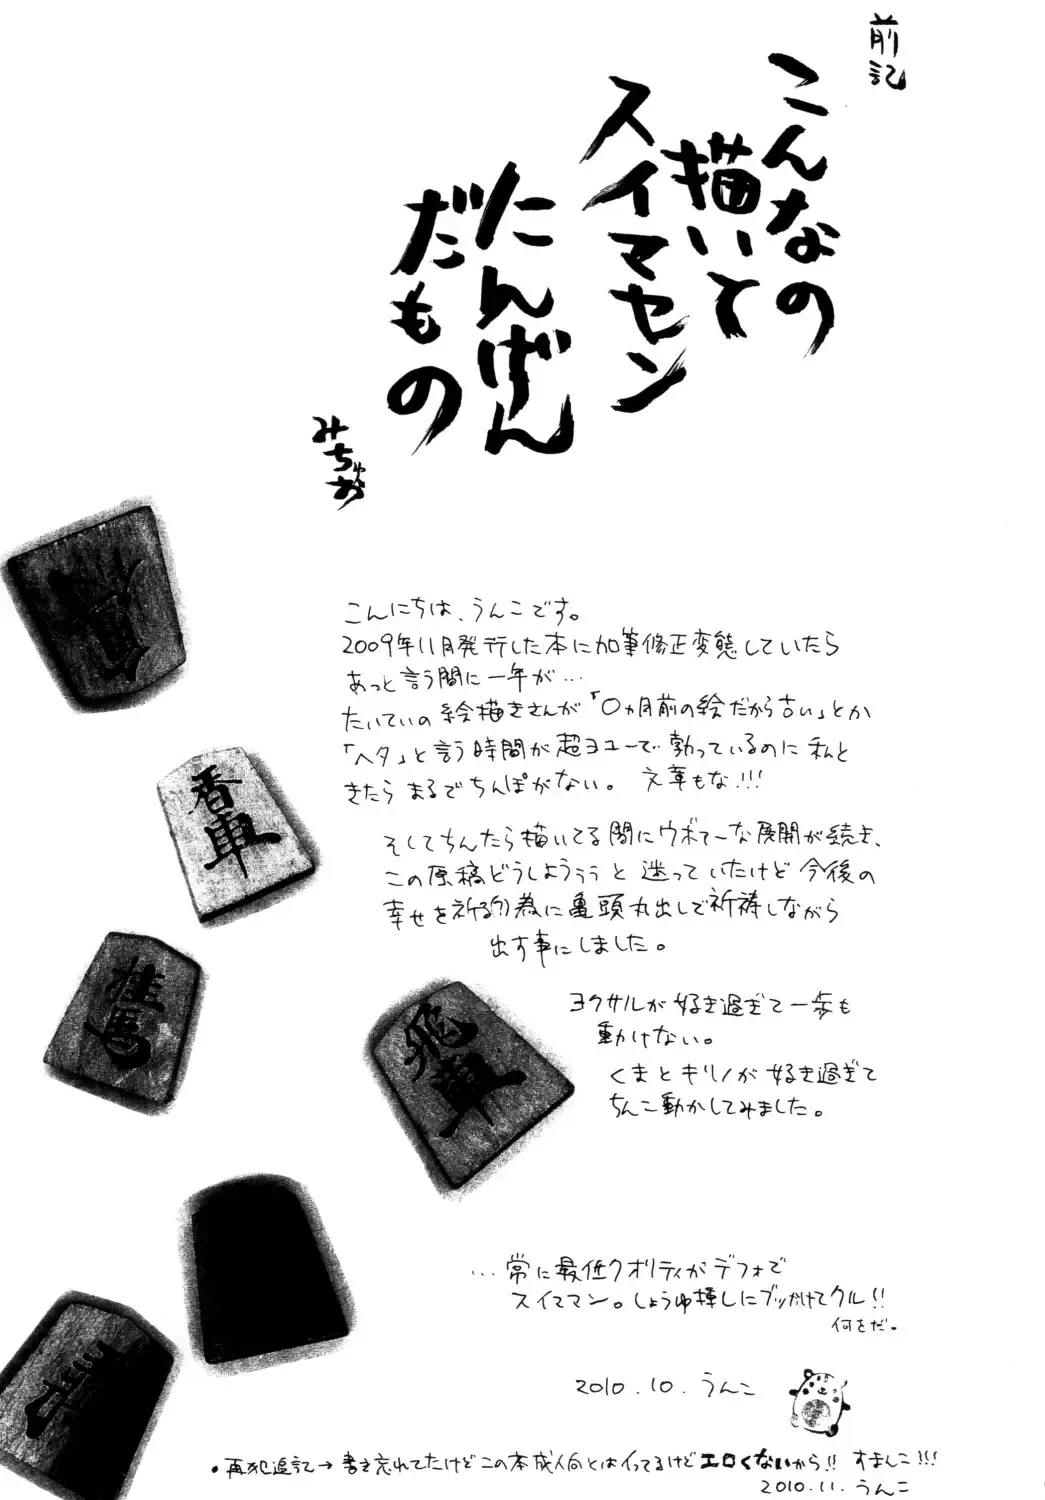 前記
こんなの
描いて
スイマセン
たんげん
だもの
みちゅお
香車
桂馬
飛車
こんにちは、うんこです。
2009年11月発行した本に加筆修正変態していたら
あっと言う間に一年が…
たいていの絵描きさんが「〇ヵ月前の絵だから古い」とか
「ヘタ」と言う時間が超ヨユーで勃っているのに私と
きたらまるでちんぽがない。 え草もな!!!
そしてちんたら描いてる間にウボァーな展開が続き、
この原稿どうしようぅぅと迷っていたけど今後の
幸せを祈る(?)為に亀頭丸出しで祈祷しながら
出す事にしました。
ヨクサルが好き過ぎて一歩も
動けない。
くまとキリノが好き過ぎて
ちんこ動かしてみました。
…常に最低クオリティがデフォで
スイママン。しょうゆ挿しにブッかけてクル!!
何をだ。
2010.10.うんこ
・再犯追記→書き忘れてたけどこの本成人向とはイってるけどエロくないから!! すまんこ!!!
2010.11.うんこ